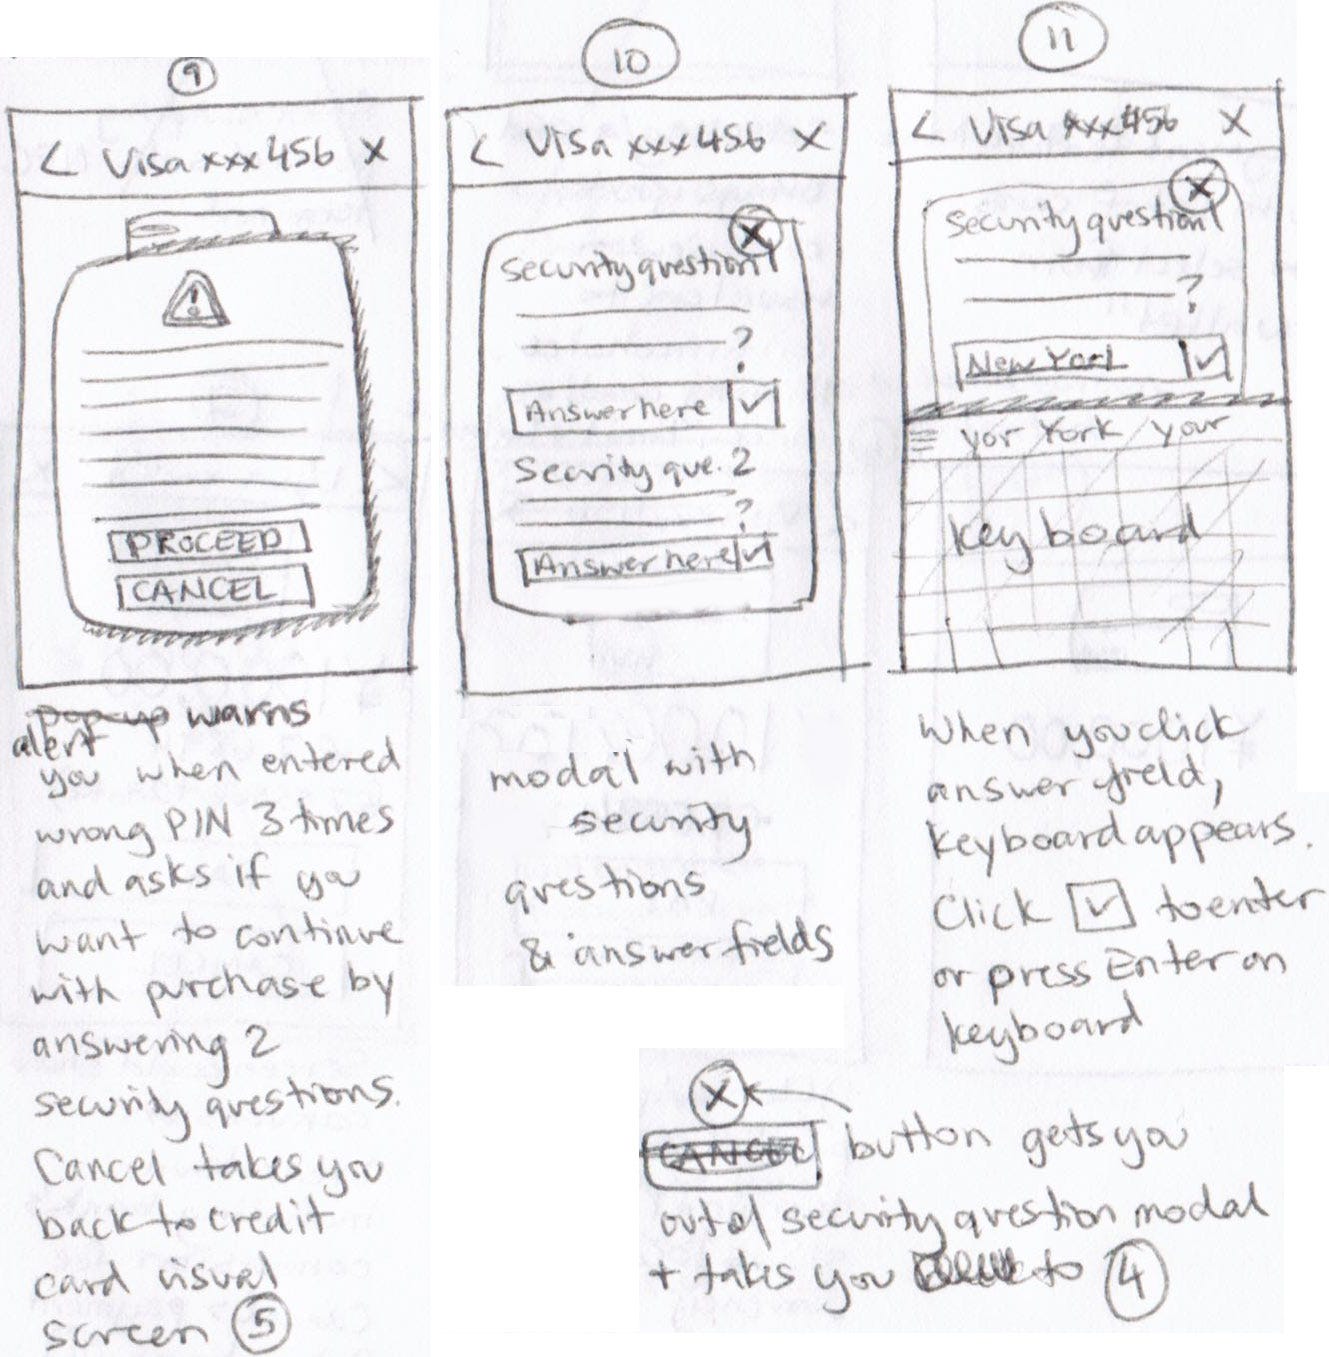 9
< Visa xxx 456 X
!
PROCEED
CANCEL
pop-up warns
alert
you when entered
wrong PIN 3 times
and asks if you
want to continue
with purchase by
answering 2
security questions.
Cancel takes you
back to credit
card visual
screen 5
10
< Visa xxx 456 X
X
Security question 1
?
Answer here ✓
Security que. 2
?
Answer here ✓
modal with
security
questions
& answer fields
11
< Visa xxx 456 X
X
Security question 1
?
New York ✓
yor York your
Keyboard
When you click
answer field,
keyboard appears.
Click ✓ to enter
or press Enter on
keyboard
X
CANCEL button gets you
out of security question modal
+ takes you to 4